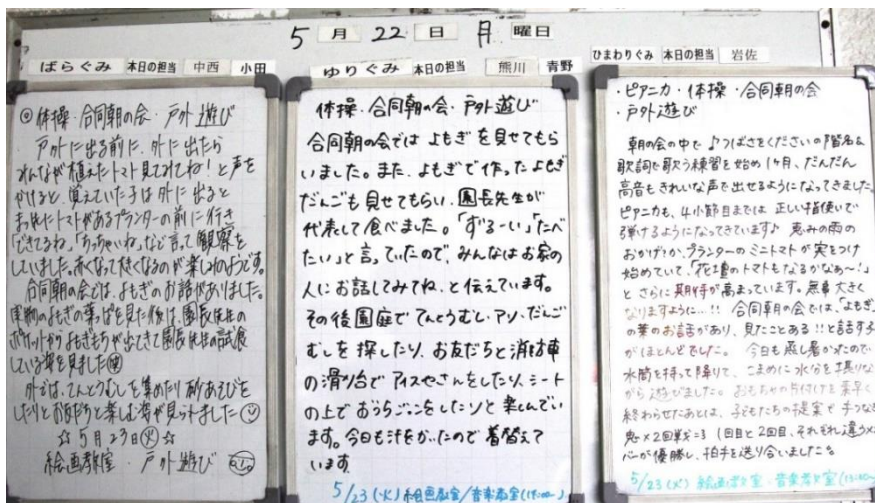 5月22日 月曜日
ばらぐみ 本日の担当 中西 小田
◎体操・合同朝の会・戸外遊び
戸外に出る前に、外に出たら
みんなが植えたトマト見てみてね!と声を
かけると、覚えていた子は外に出ると
まっ先にトマトがあるプランターの前に行き
「できてるね。」「ちっちゃいね。」など言って観察を
していました。赤くなって大きくなるのが楽しみのようです。
合同朝の会では、よもぎのお話がありました。
実物のよもぎの葉っぱを見た後は、園長先生の
ポケットからよもぎもちが出てきて園長先生の試食
している姿を見ました
外では、てんとうむしを集めたり砂あそびを
したりとお友だちと楽しむ姿が見られました
☆5月23日(火)☆
絵画教室・戸外遊び
ゆりぐみ 本日の担当 熊川 青野
体操・合同朝の会・戸外遊び
合同朝の会では よもぎを見せてもら
いました。また、よもぎで作ったよもぎ
だんごも見せてもらい、園長先生が
代表して食べました。「ずるーい」「たべ
たい」と言っていたので、みんなはお家の
人にお話してみてね、と伝えています。
その後園庭で てんとうむし・アリ・だんご
むしを探したり、お友だちと消防車
の滑り台でアイスやさんをしたり、シート
の上でおうちごっこをしたりと楽しんでい
ます。今日も汗をかいたので着替えて
います
5/23(火)絵画教室/音楽教室
ひまわりぐみ 本日の担当 岩佐
・ピアニカ・体操・合同朝の会
・戸外遊び
朝の会の中で♪つばさをくださいの階名&
歌詞で歌う練習を始め1ヶ月、だんだん
高音もきれいな声で出せるようになってきました。
ピアニカも、4小節目までは 正しい指使いで
弾けるようになってきています♪ 恵みの雨の
おかげか?、プランターのミニトマトが実をつけ
始めていて、「花壇のトマトもなるかなぁ〜!」
と さらに期待が高まっています。無事 大きく
なりますように...!! 合同朝の会では、「よもぎ」
の葉のお話があり、見たことある!!と話す子
がほとんどでした。 今日も蒸し暑かったので
水筒を持って降りて、こまめに水分を摂りな
がら遊びました。おもちゃの片付けを素早く
終わらせたあとは、子どもたちの提案で 手つなぎ
鬼×2回戦 (1回目と2回目、それぞれ違うメン
バーが優勝し、拍手を送り合いました。
5/23(火) 絵画教室・音楽教室